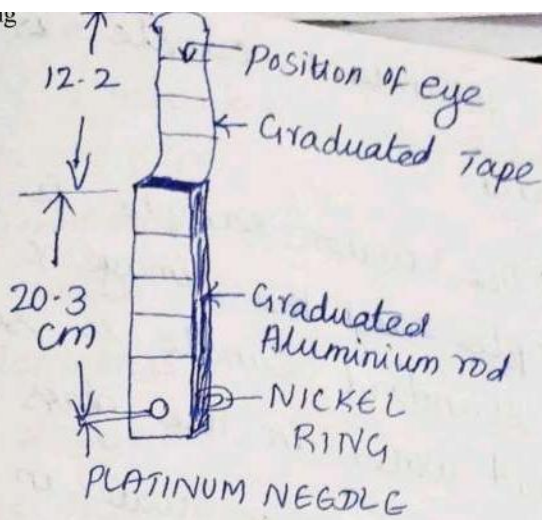 ng
12.2
Position of eye
Graduated Tape
20.3
cm
Graduated
Aluminium rod
NICKEL
RING
PLATINUM NEEDLE